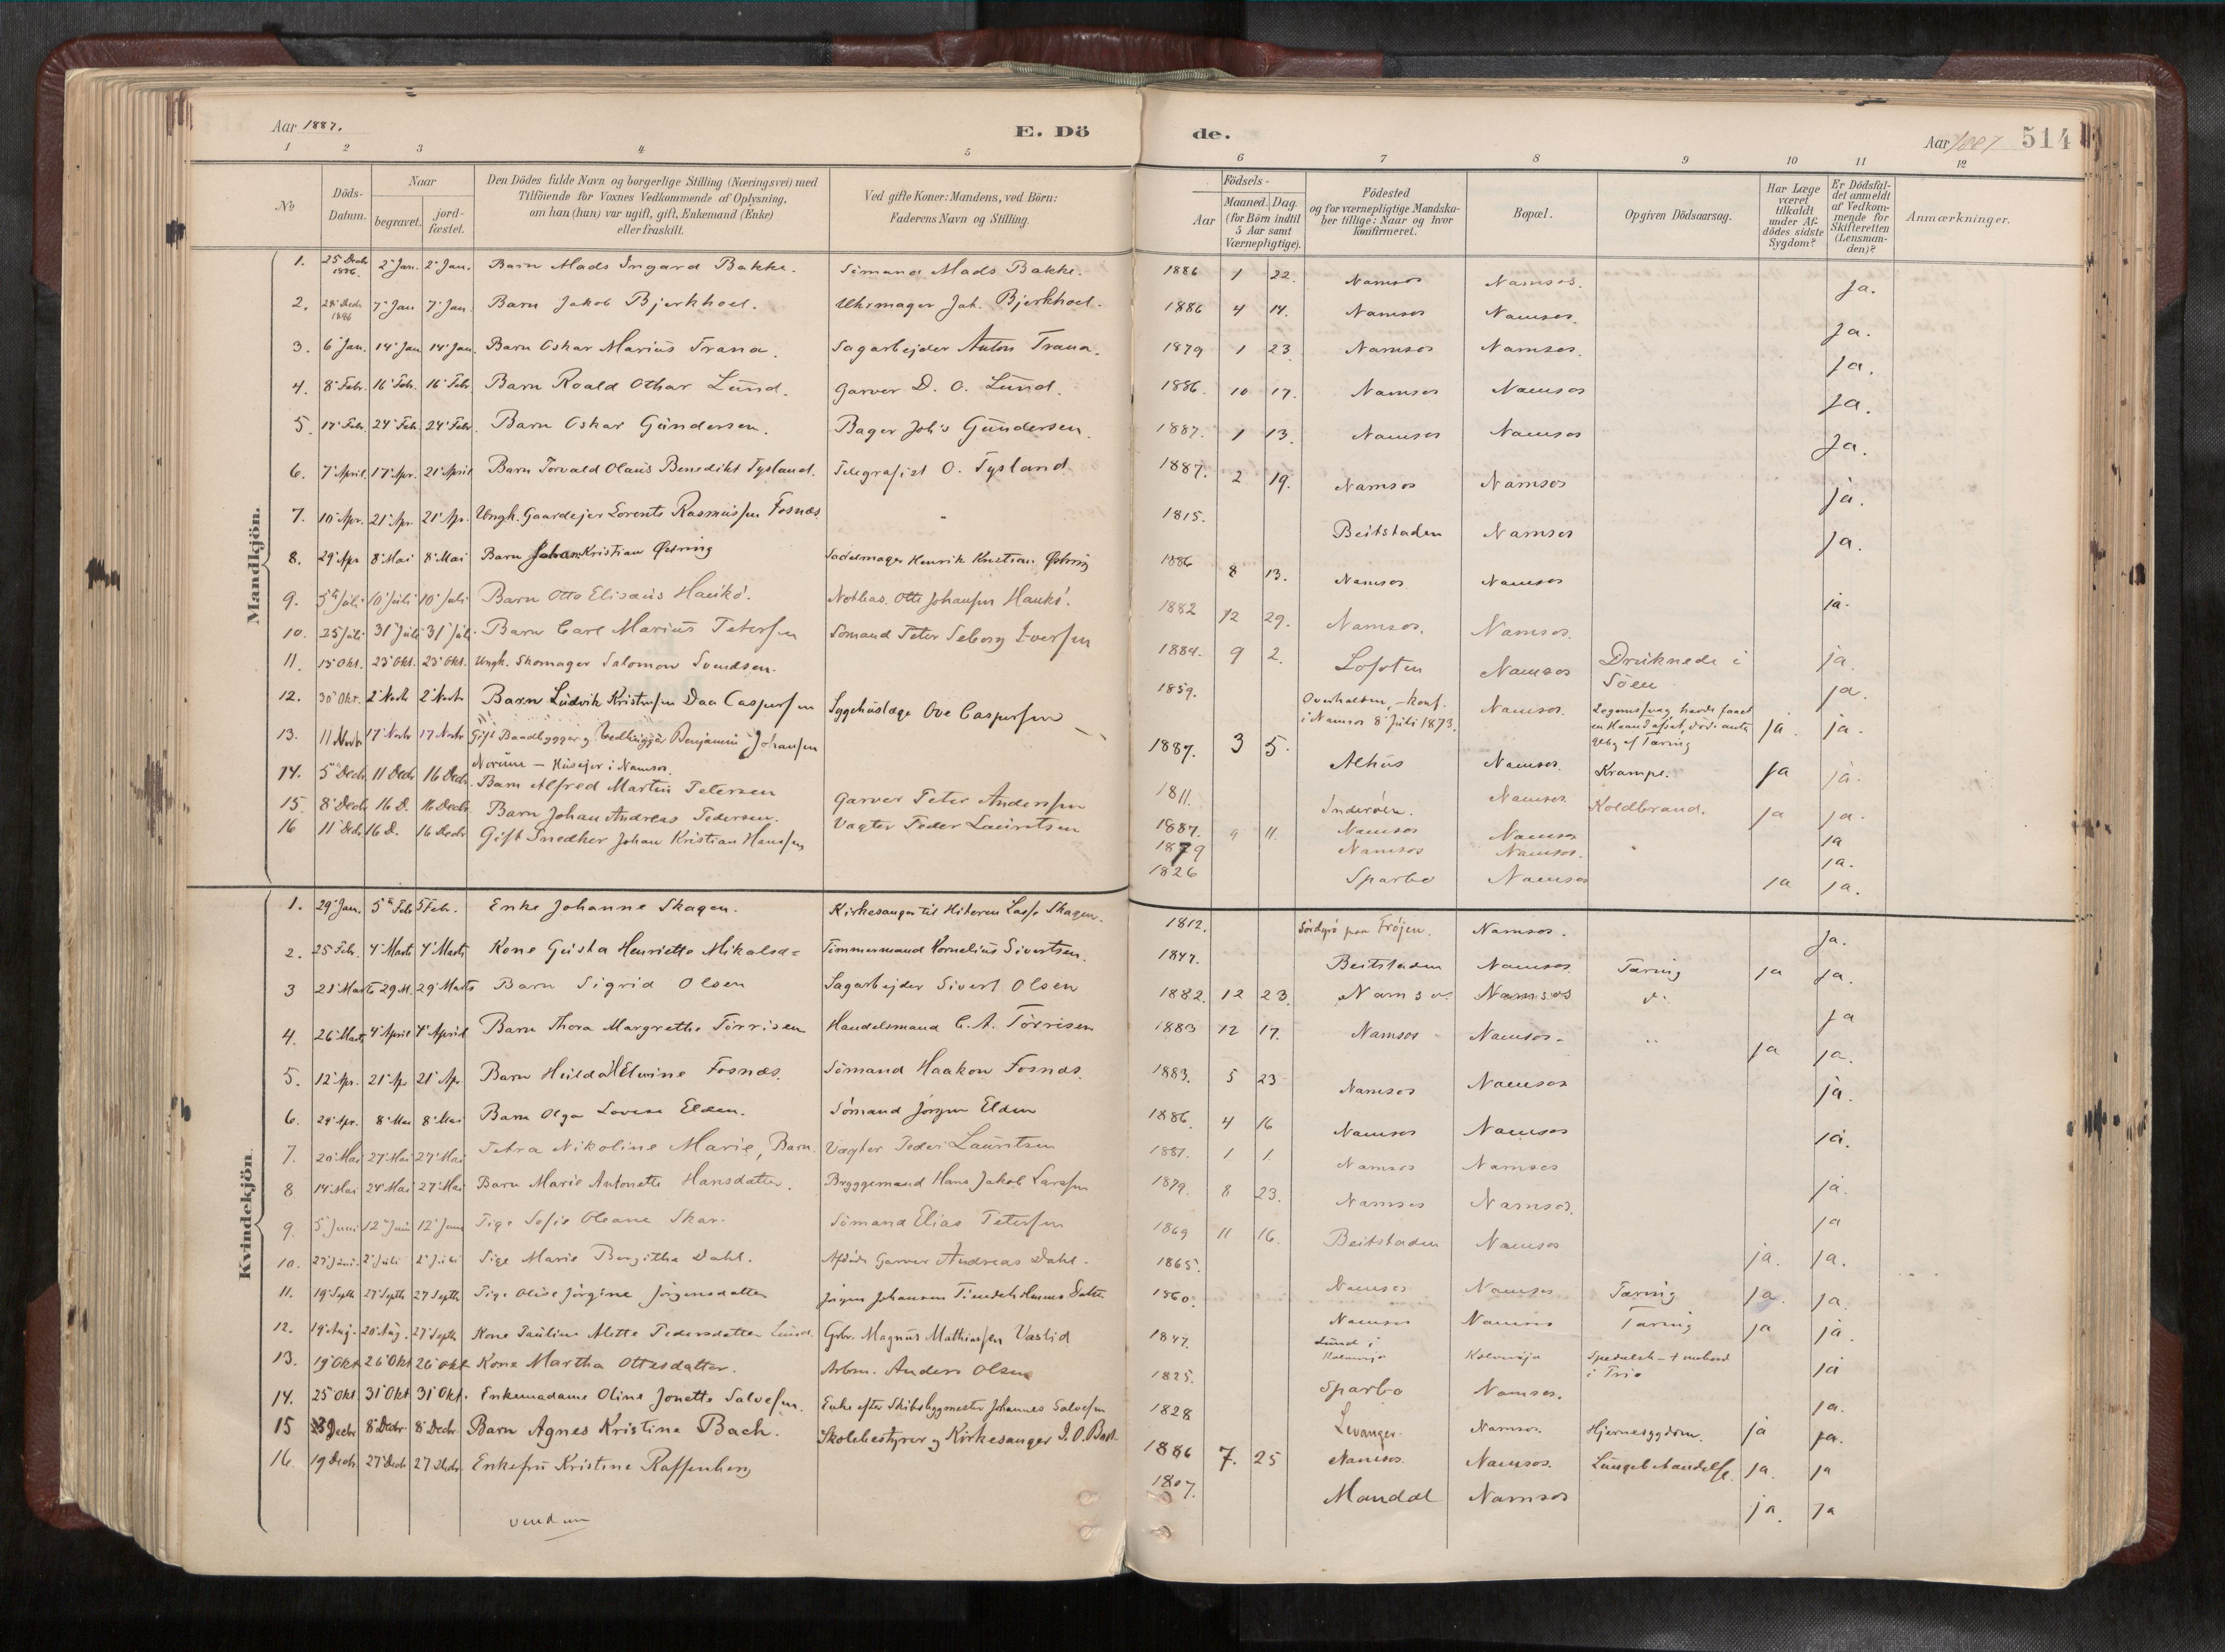 Aar 1887.
E. Dö
de.
Aar 1887
514
1 2 3 4 5 6 7 8 9 10 11 12
No
Döds-Datum.
Naar
begravet.
jord-fæstet.
Den Dödes fulde Navn og borgerlige Stilling (Næringsvei) med
Tilföiende for Voxnes Vedkommende af Oplysning,
om han (hun) var ugift, gift, Enkemand (Enke)
eller fraskilt.
Ved gifte Koner: Mandens, ved Börn:
Faderens Navn og Stilling.
Födsels-
Aar
Maaned. Dag.
(for Börn indtil
5 Aar samt
Værnepligtige).
Födested
og for værnepligtige Mandska-
ber tillige: Naar og hvor
konfirmeret.
Bopæl.
Opgiven Dödsaarsag.
Har Læge
været
tilkaldt
under Af-
dödes sidste
Sygdom?
Er Dödsfal-
det anmeldt
af Vedkom-
mende for
Skifteretten
(Lensman-
den)?
Anmærkninger.
Mandkjön.
1. 25 Decbr 1886. 2 Jan. 2 Jan. Barn Mads Ingard Bakke. Sömand Mads Bakke. 1886 1 22. Namsos Namsos. Ja.
2. 28 Decb 1886 7 Jan 7 Jan. Barn Jakob Bjerkhoel. Uhrmager Joh. Bjerkhoel. 1886 4 14. Namsos Namsos. Ja.
3. 6 Jan. 14 Jan 14 Jan. Barn Oskar Marius Trana. Sagarbejder Anton Trana. 1879 1 23 Namsos Namsos. Ja.
4. 8 Febr. 16 Feb. 16 Feb. Barn Roald Othar Lund. Garver D. O. Lund. 1886. 10 17. Namsos Namsos Ja.
5. 17 Feb. 24 Feb. 24 Febr. Barn Oskar Gundersen. Bager Joh's Gundersen. 1887. 1 13. Namsos Namsos Ja.
6. 7 April. 17 Apr. 21 April Barn Torvald Olaus Benedikt Tysland. Telegrafist O. Tysland 1887. 2 19. Namsos Namsos ja.
7. 10 Apr. 21 Apr. 21 Apr. Ungk. Gaardejer Lorents Rasmussen Fosnæs 1815. Beitstaden Namsos ja.
8. 29 Apr 8 Mai 8 Mai Barn Johan Kristian Østring Sadelmager Henrik Kristian Østring 1886 8 13. Namsos Namsos ja.
9. 5 Juli 10 Juli 10 Juli Barn Otto Elisæus Haukö. Notbas. Otto Johansen Haukö. 1882 12 29. Namsos. Namsos.
10. 25 Juli 31 Juli 31 Juli. Barn Carl Marius Petersen Sömand Peter Seberg Iversen 1884. 9 2. Lofoten Namsos Druknede i Söen ja.
11. 15 Okt. 23 Okt. 23 Okt. Ungk. Skomager Salomon Svendsen. 1859. Overhalden, – konf. i Namsos 8 Juli 1873. Namsos. ja. ja.
12. 30 Okt. 2 Novbr 2 Novbr Barn Ludvik Kristensen Daa Caspersen Sygehuslæge Ove Caspersen 1887. 3 5. Alhus Namsos. Krampe. ja ja.
13. 11 Novbr 17 Novbr 17 Novbr Gift Baadbygger og Vedhugger Benjamin Johansen
Norum – Husejer i Namsos. 1811. Inderöen. Namsos Koldbrand. ja ja.
14. 5 Decbr 11 Decbr 16 Decbr. Barn Alfred Martin Petersen Garver Peter Anderssen 1887. 9 11. Namsos Namsos ja
15. 8 Decb 16 D. 16 Decbr. Barn Johan Andreas Pedersen. Vagter Peder Lauritsen 1879 Namsos Namsos. ja.
16 11 Decbr 16 D. 16 Decbr Gift Snedker Johan Kristian Hanssen 1826 Sparbo Namsos ja ja.
Kvindekjön.
1. 29 Jan. 5 Feb 5 Febr. Enke Johanne Skagen. Kirkesanger til Hiteren Lasse Skagen. 1812. paa Fröjen. Namsos. Ja.
2. 25 Feb. 4 Marts 4 Marts Kone Gusta Henriette Mikalsd= Tömmermand Kornelius Sivertsen. 1847. Beitstaden Namsos. Tæring ja Ja.
3 21 Marts 29 M. 29 Marts Barn Sigrid Olsen Sagarbejder Sivert Olsen 1882. 12 23. Namsos. Namsos ja
4. 26 Marts 4 April 4 April Barn Thora Margrethe Törrisen Handelsmand C. A. Törrisen 1883 12 17. Namsos Namsos - ja ja.
5. 12 Apr. 21 Ap. 21 Ap. Barn Hulda Elvine Fosnæs. Sömand Haakon Fosnæs. 1883. 5 23 Namsos Namsos ja.
6. 29 Apr. 8 Mai 8 Mai Barn Olga Lovise Elden. Sömand Jörgen Elden 1886. 4 16 Namsos Namsos ja.
7. 20 Mai 27 Mai 27 Mai Petra Nikoline Marie, Barn. Vagter Peder Lauritsen 1881. 1 1. Namsos Namsos ja.
8. 14 Mai 24 Mai 27 Mai Barn Marie Antonette Hansdatter. Bryggemand Hans Jakob Larssen 1879. 8 23. Namsos Namsos. ja
9. 5 Juni 12 Juni 12 Juni Pige Sofie Oleane Skar. Sömand Elias Petersen 1869 11 16. Beitstaden Namsos ja. ja.
10. 27 Juni. 2 Juli 2 Juli Pige Marie Bergitha Dahl. Afdöde Garver Andreas Dahl. 1865. Namsos Namsos Tæring ja. ja.
11. 19 Septb 27 Septb 27 Septb Pige Olise Jörgine Jörgensdatter Jörgen Johansen 1860. Namsos Namsos Tæring ja ja.
12. 19 Aug. 20 Aug. 27 Septb Kone Pauline Alette Pedersdatter Lund. Gbr. Magnus Mathiassen Vaslid 1847. Lund i Kolvereja Kolvereja Spedalsk – i Trio ja
13. 19 Okt 26 Okt 26 Okt Kone Martha Ottesdatter. Arbm. Anders Olsen 1825. Sparbo Namsos. ja.
14. 25 Okt 31 Okt 31 Okt. Enkemadame Oline Jonette Salvesen. Enke efter Skibsbygmester Johannes Salvesen 1828 Levanger. Namsos. Hjernesygdom. ja ja.
15 3 Decbr 8 Decbr 8 Decbr. Barn Agnes Kristine Bach. Skolebestyrer og Kirkesanger J. O. Bach 1886 7. 25 Namsos. Namsos. Lungebetændelse ja. ja
16. 19 Decb. 27 Decb 27 Decbr. Enkefru Kristine Raffenberg 1807. Mandal Namsos ja. ja
vend om